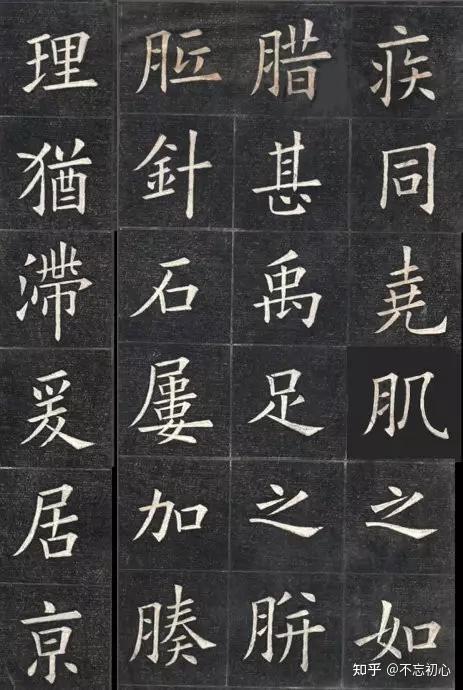 疾同堯肌之如
腊甚禹足之胼
胝針石屢加腠
理猶滯爰居亰
知乎 @不忘初心